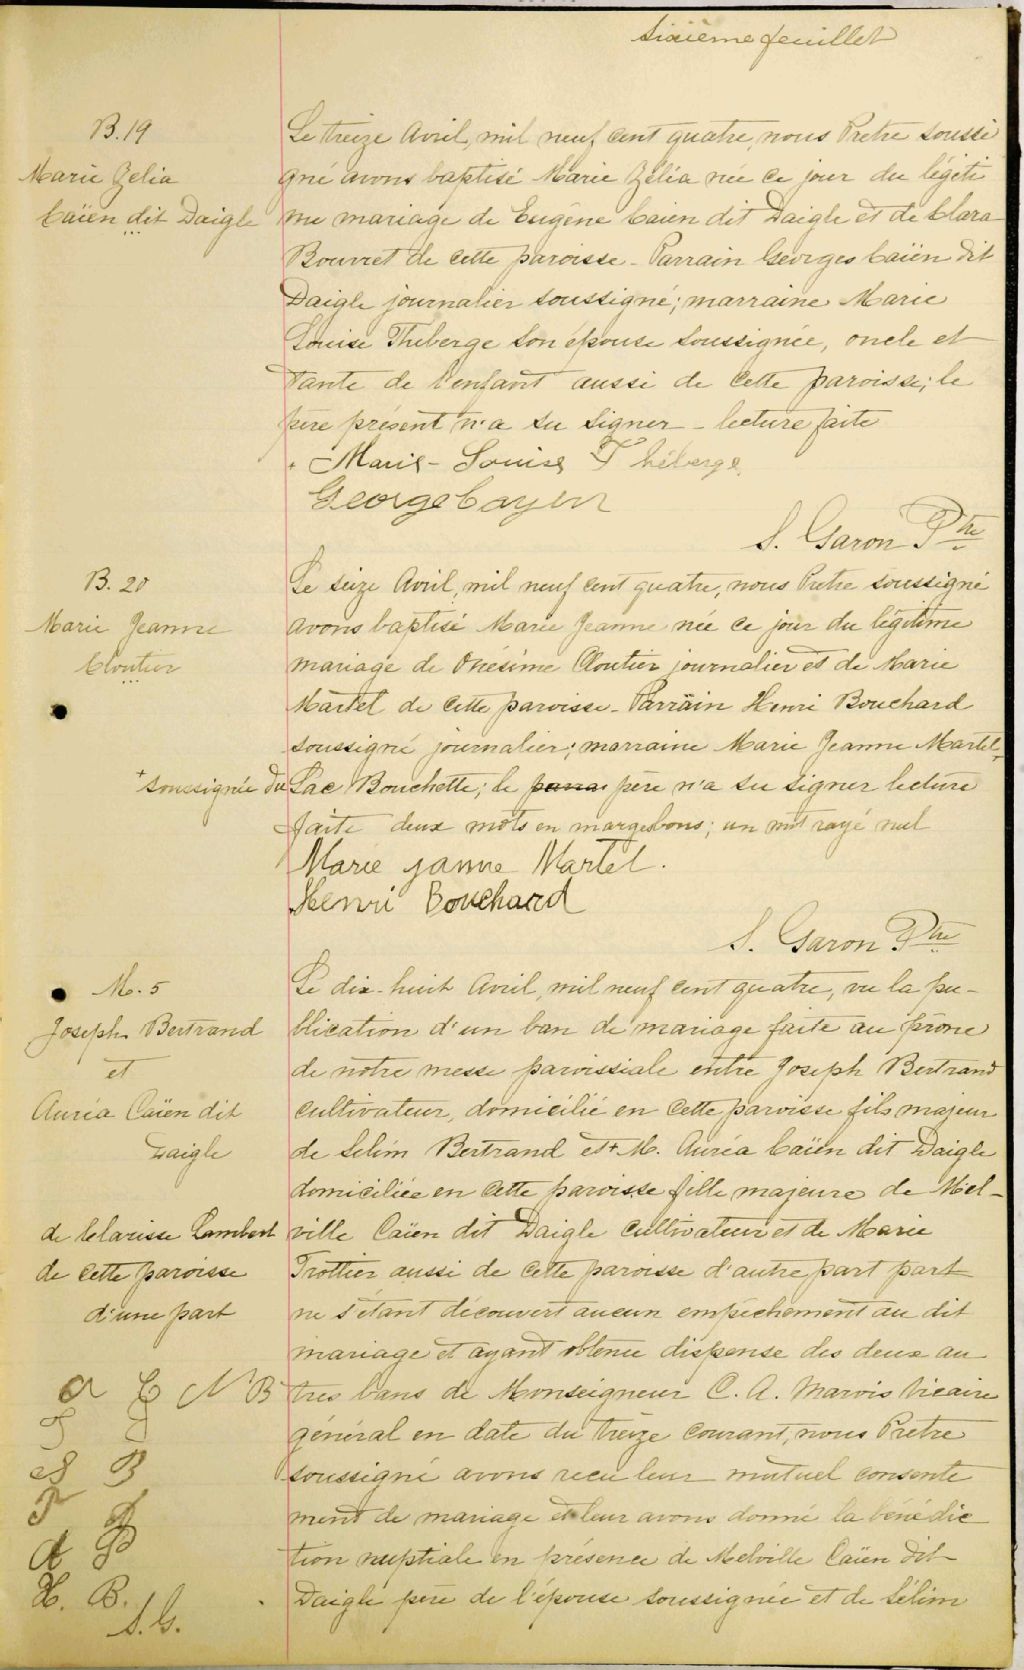 Sixième feuillet
B. 19
Marie Zelia
Caïen dit Daigle
Le treize Avril, mil neuf cent quatre, nous Prêtre soussi
gné avons baptisé Marie Zélia née ce jour du légiti
me mariage de Eugène Caïen dit Daigle et de Clara
Bouvret de cette paroisse - Parrain Georges Caïen dit
Daigle journalier soussigné; marraine Marie
Louise Theberge son épouse soussignée, oncle et
tante de l'enfant aussi de cette paroisse; le
père présent n'a su signer - lecture faite
Marie-Louise Théberge
George Cayen
S. Garon Ptre
B. 20
Marie Jeanne
Cloutier
Le seize Avril, mil neuf cent quatre, nous Prêtre soussigné
avons baptisé Marie Jeanne née ce jour du légitime
mariage de Onésime Cloutier journalier et de Marie
Martel de cette paroisse - Parrain Henri Bouchard
soussigné journalier; marraine Marie Jeanne Martel
+ soussignée du Lac Bouchette; le père n'a su signer lecture
faite deux mots en marge bons; un mot rayé nul
Marie janne Martel.
Henri Bouchard
S. Garon Ptre
M. 5
Joseph Bertrand
et
Auréa Caïen dit
Daigle
Le dix-huit Avril, mil neuf cent quatre, vu la pu-
blication d'un ban de mariage faite au prône
de notre messe paroissiale entre Joseph Bertrand
cultivateur, domicilié en cette paroisse fils majeur
de Sélim Bertrand et + M. Auréa Caïen dit Daigle
domiciliée en cette paroisse fille majeure de Mel-
ville Caïen dit Daigle cultivateur et de Marie
Trottier aussi de cette paroisse d'autre part part
ne s'étant découvert aucun empêchement au dit
mariage et ayant obtenu dispense des deux au
tres bans de Monseigneur C. A. Marois Vicaire
général en date du treize courant, nous Prêtre
soussigné avons reçu leur mutuel consente
ment de mariage et leur avons donné la bénédic
tion nuptiale en présence de Melville Caïen dit
Daigle père de l'épouse soussignée et de Sélim
de Clarisse Lambert
de cette paroisse
d'une part
N B
H. B.
S. G.